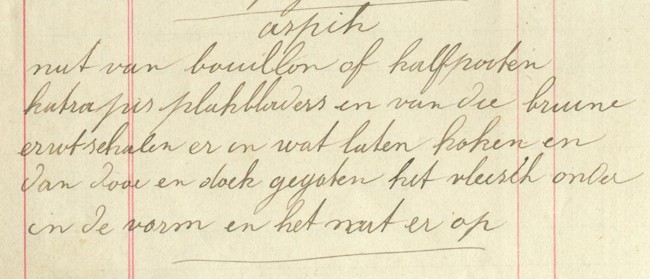 aspik
nut van bouillon of kalfpooten
plakbladers en van die bruine
erwtschalen er in wat laten koken en
dan door en doek gegoten het vleesch onder
in de vorm en het nat er op